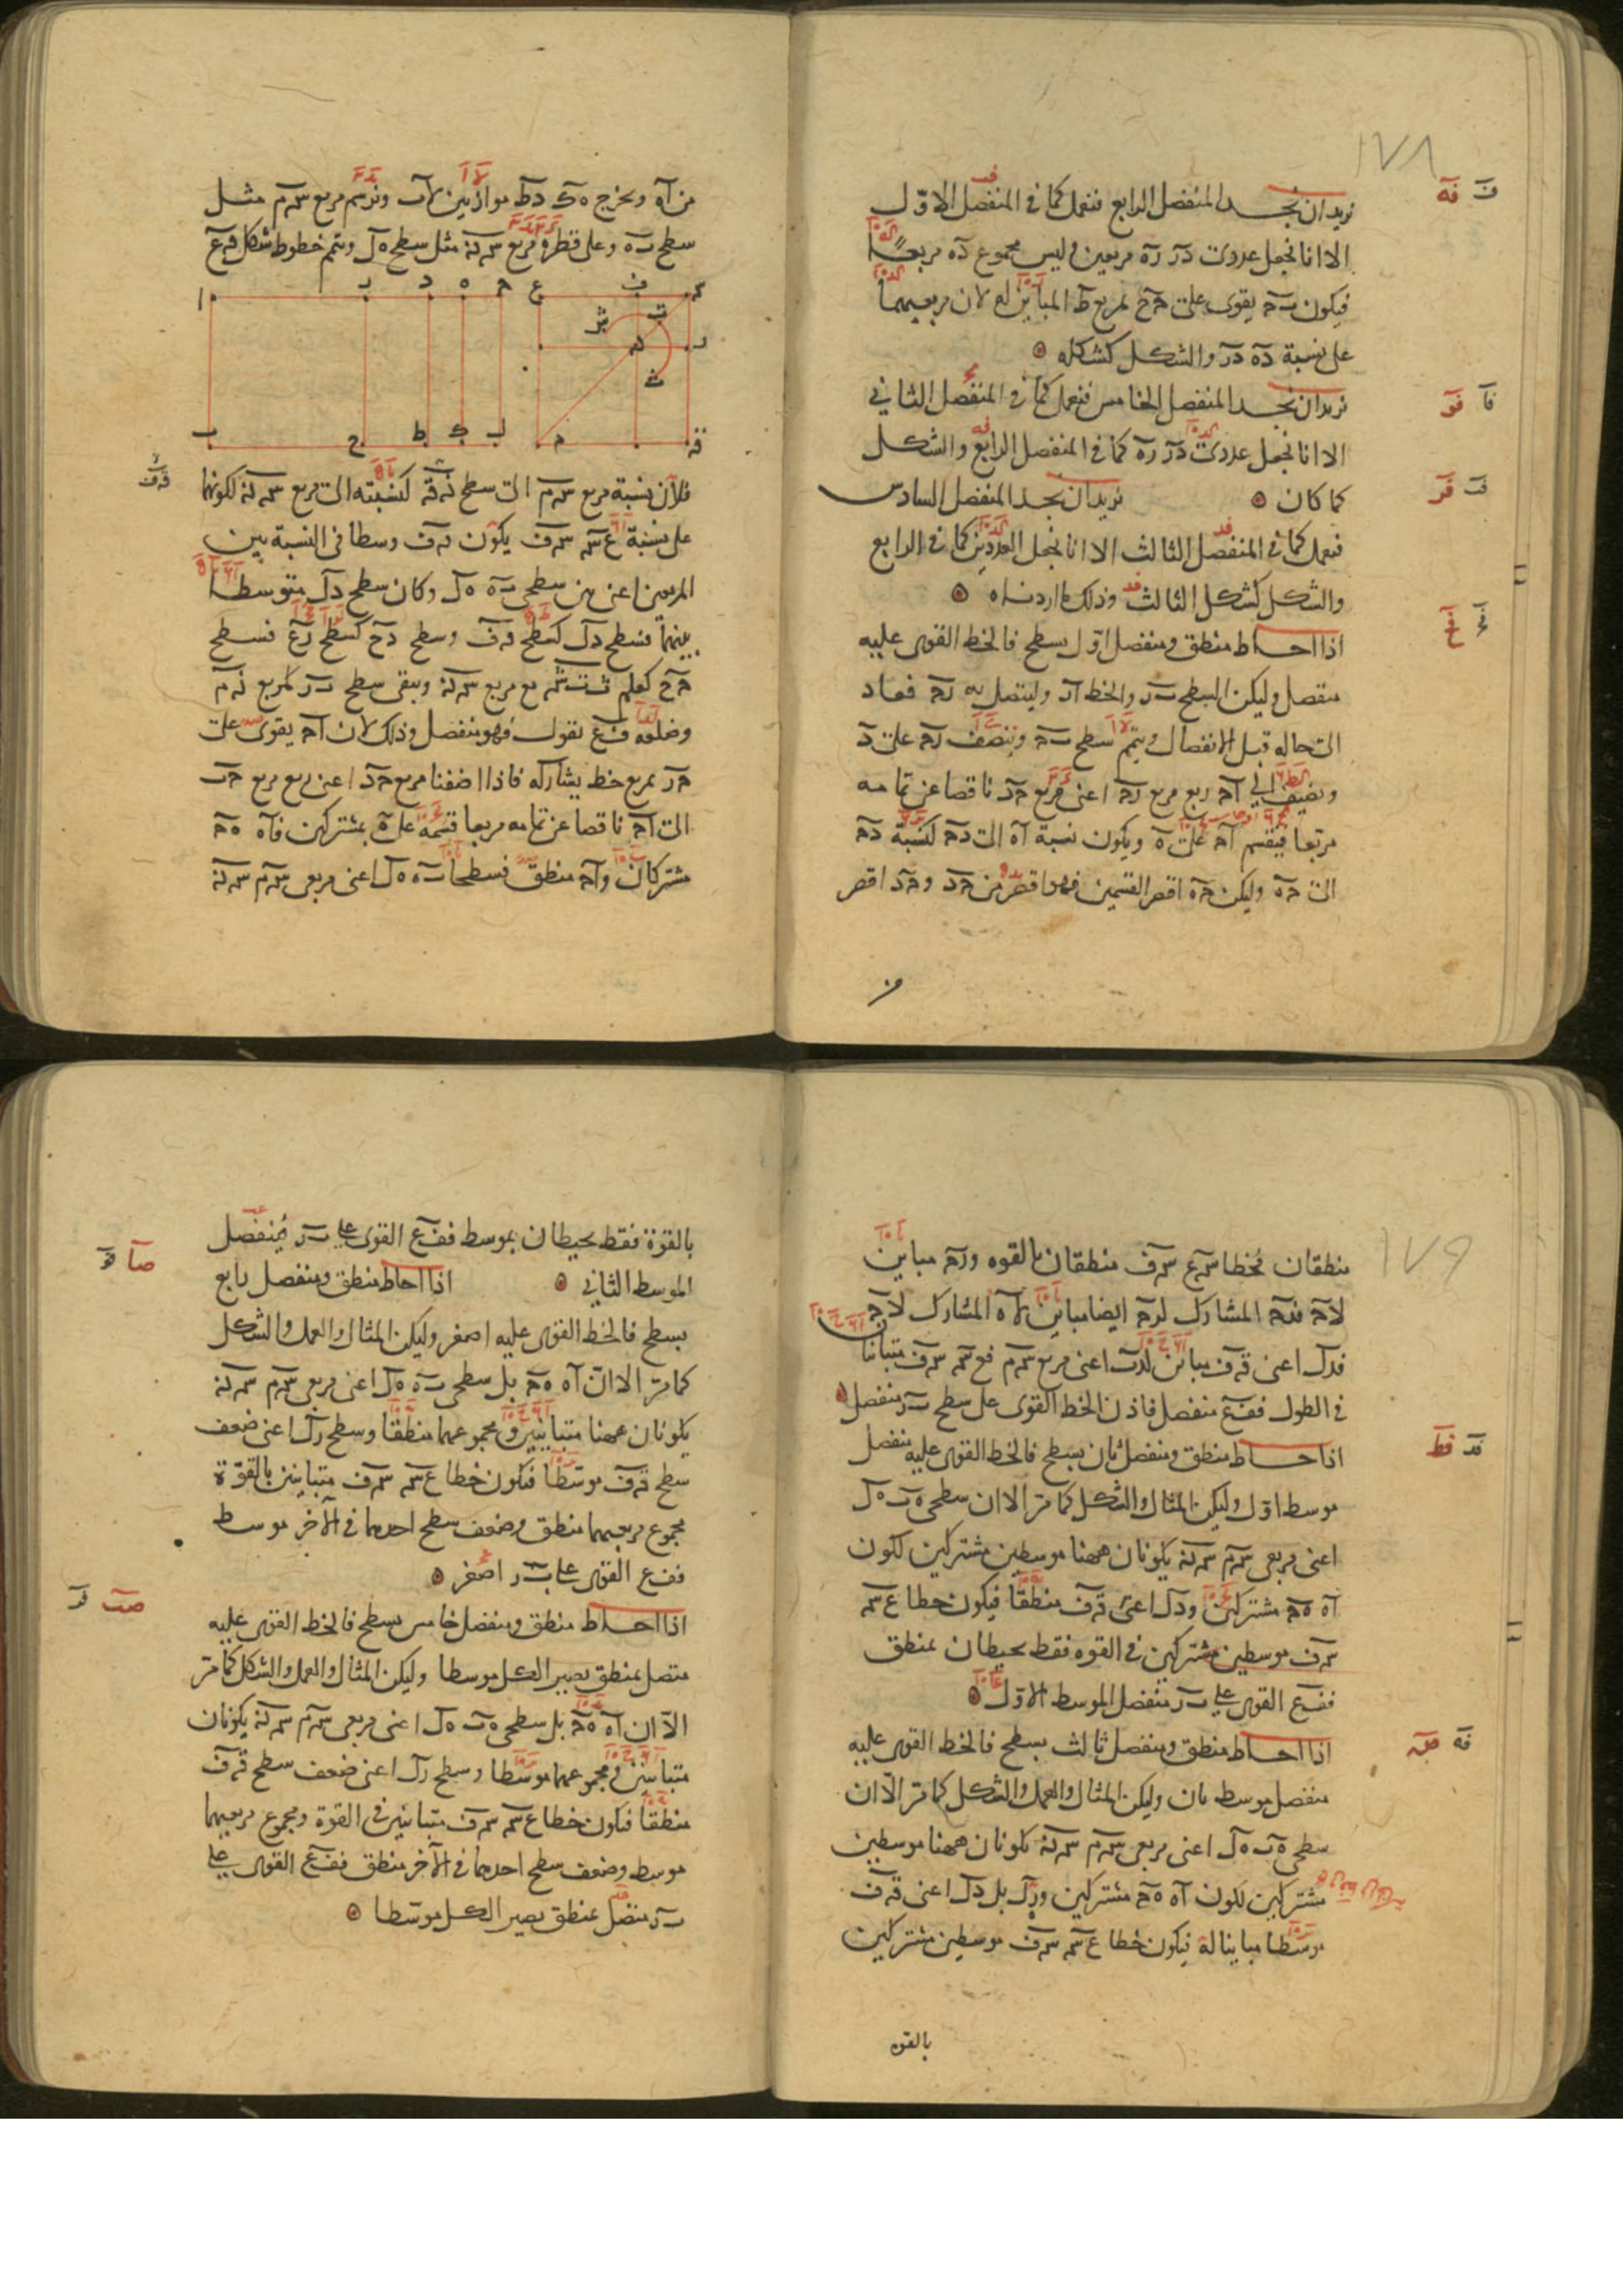 ١٧٨
نريد ان نجد المنفصل الرابع فنعمل كما فى المنفصل الاوّل
الا انا نجعل عددى دَر رَه مربعين وليس مجموع دَه مربعًا
فيكون بَحَ يقوى على حَح بمربع ط المباين له لان مربعيهما
على نسبة دَه دَر والشكل كشكله
نريد ان نجد المنفصل الخامس فنعمل كما فى المنفصل الثانى
الا انا نجعل عددى دَر رَه كما فى المنفصل الرابع والشكل
كما كان نريد ان نجد المنفصل السادس
فنعمل كما فى المنفصل الثالث الا انا نجعل العددين كما فى الرابع
والشكل كشكل الثالث وذلك ما اردناه
اذا احاط منطق ومنفصل اوّل بسطح فالخط القوى عليه
منفصل وليكن السطح بَر والخط اَر وليتصل به رَحَ فعاد
الى حاله قبل الانفصال ويتم سطح بَحَ وننصف رَحَ على دَ
ونضيف الى اَحَ ربع مربع رَحَ اعنى مربع حَد ناقصا عن تمامه
مربعا فينقسم اَحَ على هَ ويكون نسبة اَه الى دَحَ كنسبة دَحَ
الى حَه وليكن حَه اقصر القسمين فهو اقصر من حَد وحَد اقصر
من اَه ونخرج هَك دَط موازيين لاَب ونرسم مربع سَم مثل
سطح بَه وعلى قطره مربع سَن مثل سطح هَل ونتم خطوط شكل قَع
ا ر د ه ح ع ف س
ث ت ر ن ث
ب ح ط ك ل م ق
فلان نسبة مربع سَم الى سطح نَق كنسبته الى مربع سَن لكونها
على نسبة عَس سَف يكون قَف وسطا فى النسبة بين
المربعين اعنى بين سطحى بَه هَل وكان سطح دَل متوسطا
بينهما فسطح دَل كسطح قَف وسطح دَح كسطح رَع فسطح
حَح كعلم ثَتَثَ مع مربع سَن ويبقى سطح بَر كمربع نَم
وضلعه فَع نقول فهو منفصل وذلك لان اَحَ يقوى على
حَر بمربع خط يشاركه فاذا اضفنا مربع حَد اعنى ربع مربع حَر
الى اَحَ ناقصا عن تمامه مربعا قسمه على هَ بمشتركين فاَه هَحَ
مشتركان واَحَ منطق فسطحا بَه هَل اعنى مربعى سَم سَن
١٧٩
منطقان فخطا سَع سَف منطقان بالقوه ورَحَ مباين
لاَحَ فدَحَ المشارك لرَحَ ايضا مباين لاَه المشارك لاَحَ
فدَل اعنى قَف مباين لهَب اعنى مربع سَم فع سَ سَف متباينان
فى الطول ففَع منفصل فاذن الخط القوى على سطح بَر منفصل
اذا احاط منطق ومنفصل ثان بسطح فالخط القوى عليه منفصل
موسط اوّل وليكن المثال والشكل كما مرّ الا ان سطحى هَب هَل
اعنى مربعى سَم سَن يكونان ههنا موسطين مشتركين لكون
اَه هَحَ مشتركين ودَل اعنى قَف منطقا فيكون خطا عَس
سَف موسطين مشتركين فى القوه فقط يحيطان بمنطق
ففَع القوى على بَر منفصل الموسط الاوّل
اذا احاط منطق ومنفصل ثالث بسطح فالخط القوى عليه
منفصل موسط ثان وليكن المثال والعمل والشكل كما مرّ الّا ان
سطحى هَب هَل اعنى مربعى سَم سَن يكونان ههنا موسطين
مشتركين لكون اَه هَحَ مشتركين ورَل بل دَل اعنى قَف
موسطا مباينا له فيكون خطا عَس سَف موسطين مشتركين
بالقوه
بالقوة فقط يحيطان بموسط ففَع القوى على بَر منفصل
الموسط الثانى اذا احاط منطق ومنفصل رابع
بسطح فالخط القوى عليه اصغر وليكن المثال والعمل والشكل
كما مرّ الا انّ اَه هَحَ بل سطحى بَه هَل اعنى مربعى سَم سَن
يكونان ههنا متباينين ومجموعهما منطقا وسطح رَل اعنى ضعف
سطح قَف موسّطا فيكون خطا عَس سَف متباينين بالقوّة
مجموع مربعيهما منطق وضعف سطح احدهما فى الآخر موسط
ففَع القوى على بَر اصغر
اذا احاط منطق ومنفصل خامس بسطح فالخط القوى عليه
متصل بمنطق يصير الكل موسطا وليكن المثال والعمل والشكل كما مرّ
الّا ان اَه هَحَ بل سطحى هَب هَل اعنى مربعى سَم سَن يكونان
متباينين ومجموعهما موسطا وسطح رَل اعنى ضعف سطح قَف
منطقا فيكون خطا عَس سَف متباينين فى القوة ومجموع مربعيهما
موسط وضعف سطح احدهما فى الآخر منطق ففَع القوى على
بَر متصل بمنطق يصير الكل موسّطا